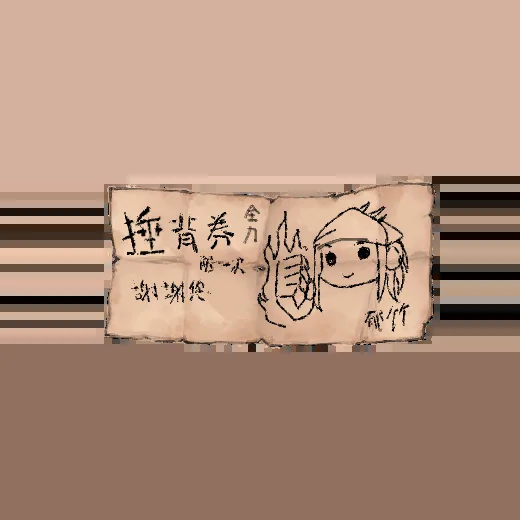 捶背券
全力
限一次
謝謝您
郁竹